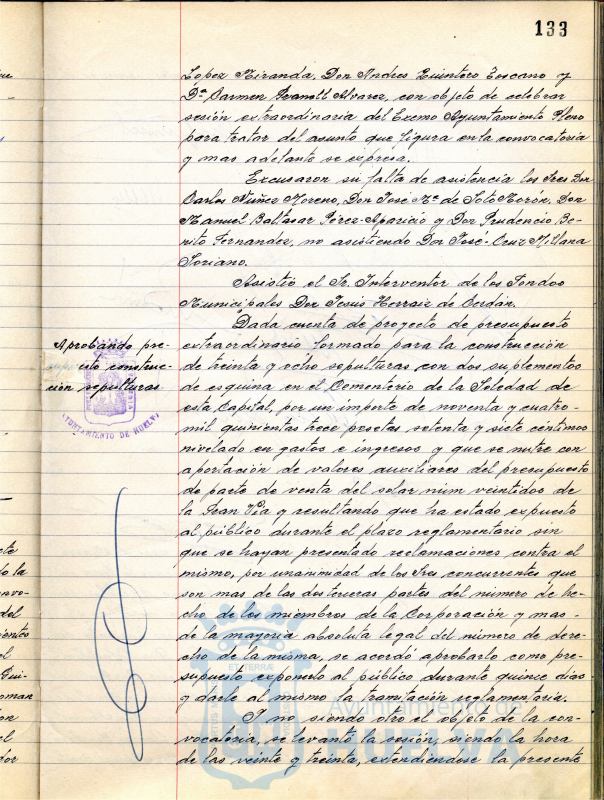 133
Lopez Miranda, Don Andres Quintero Toscano y
Dª Carmen Alvarez, con objeto de celebrar
sesión extraordinaria del Excmo Ayuntamiento Pleno
para tratar del asunto que figura en la convocatoria
y mas adelante se expresa.
Excusaron su falta de asistencia los Sres Don
Carlos Núñez Moreno, Don José Mª de Soto Morón, Don
Manuel Baltasar Pérez-Aparicio y Don Prudencio Be-
nito Fernandez, no asistiendo Don José-Cruz Millana
Soriano.
Asistió el Sr. Interventor de los Fondos
Municipales Don Jesús Herraiz de Cerdán.
Dada cuenta de proyecto de presupuesto
extraordinario formado para la construcción
de treinta y ocho sepulturas con dos suplementos
de esquina en el Cementerio de la Soledad de
esta Capital, por un importe de noventa y cuatro-
mil quinientas trece pesetas setenta y siete céntimos
nivelado en gastos e ingresos y que se nutre con
aportación de valores auxiliares del presupuesto
de parte de venta del solar núm veintidos de
la Gran Via y resultando que ha estado expuesto
al público durante el plazo reglamentario sin
que se hayan presentado reclamaciones contra el
mismo, por unanimidad de los Sres concurrentes que
son mas de las dos terceras partes del número de he-
cho de los miembros de la Corporación y mas-
de la mayoria absoluta legal del número de dere-
cho de la misma, se acordó aprobarlo como pre-
supuesto exponerlo al público durante quince dias
y darle al mismo la tramitación reglamentaria.
Y no siendo otro el objeto de la con-
vocatoria, se levantó la sesión, siendo la hora
de las veinte y treinta, extendiendose la presente
Aprobando pre-
supuesto construc-
ción sepulturas
AYUNTAMIENTO DE HUELVA
Ayuntamiento de
HUELVA